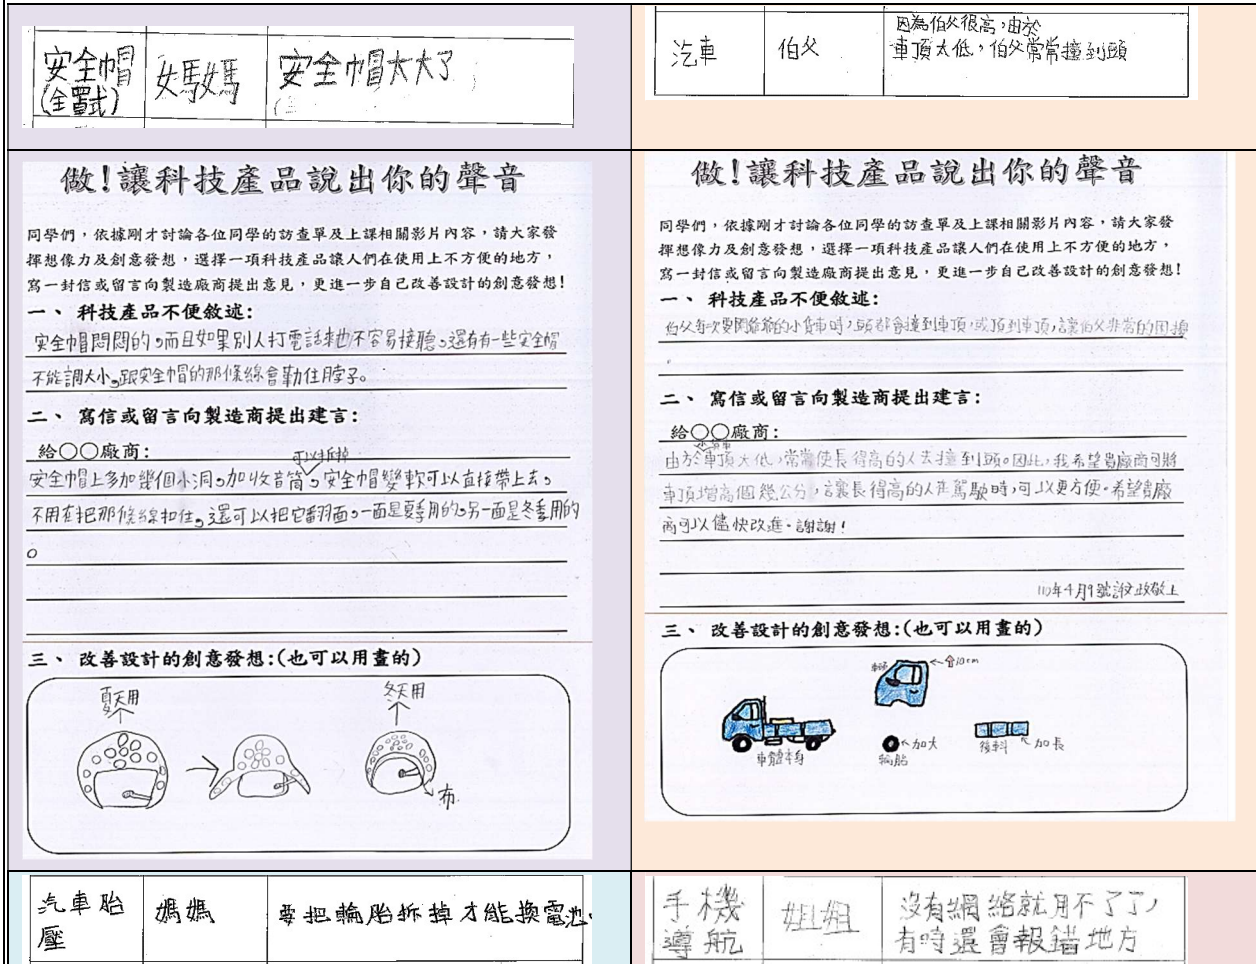 安全帽
(全罩式)
媽媽
安全帽太大了
汽車
伯父
因為伯父很高，由於
車頂太低，伯父常常撞到頭
做!讓科技產品說出你的聲音
同學們，依據剛才討論各位同學的訪查單及上課相關影片內容，請大家發
揮想像力及創意發想，選擇一項科技產品讓人們在使用上不方便的地方，
寫一封信或留言向製造廠商提出意見，更進一步自己改善設計的創意發想!
一、 科技產品不便敘述:
安全帽悶悶的。而且如果別人打電話來也不容易接聽。還有有一些安全帽
不能調大小。跟安全帽的那條線會勒住脖子。
二、 寫信或留言向製造商提出建言:
給○○廠商:
可以拆掉
安全帽上多加幾個小洞。加收音筒。安全帽變軟可以直接帶上去。
不用在把那條線扣住。還可以把它翻面。一面是夏季用的。另一面是冬季用的
。
三、 改善設計的創意發想:(也可以用畫的)
夏天用
冬天用
布
做!讓科技產品說出你的聲音
同學們，依據剛才討論各位同學的訪查單及上課相關影片內容，請大家發
揮想像力及創意發想，選擇一項科技產品讓人們在使用上不方便的地方，
寫一封信或留言向製造廠商提出意見，更進一步自己改善設計的創意發想!
一、 科技產品不便敘述:
伯父每次要開爺爺的小貨車時，頭都會撞到車頂，或頂到車頂，讓伯父非常的困擾
。
二、 寫信或留言向製造商提出建言:
給○○廠商:
小貨車
由於車頂太低，常常使長得高的人去撞到頭。因此，我希望貴廠商可將
車頂增高個幾公分，讓長得高的人在駕駛時，可以更方便。希望貴廠
商可以儘快改進。謝謝!
110年4月9號 敬上
三、 改善設計的創意發想:(也可以用畫的)
車頭
10cm
車體本身
加大
輪胎
後斗
加長
汽車胎
壓
媽媽
要把輪胎拆掉才能換電池。
手機
導航
姐姐
沒有網絡就用不了了，
有時還會報錯地方